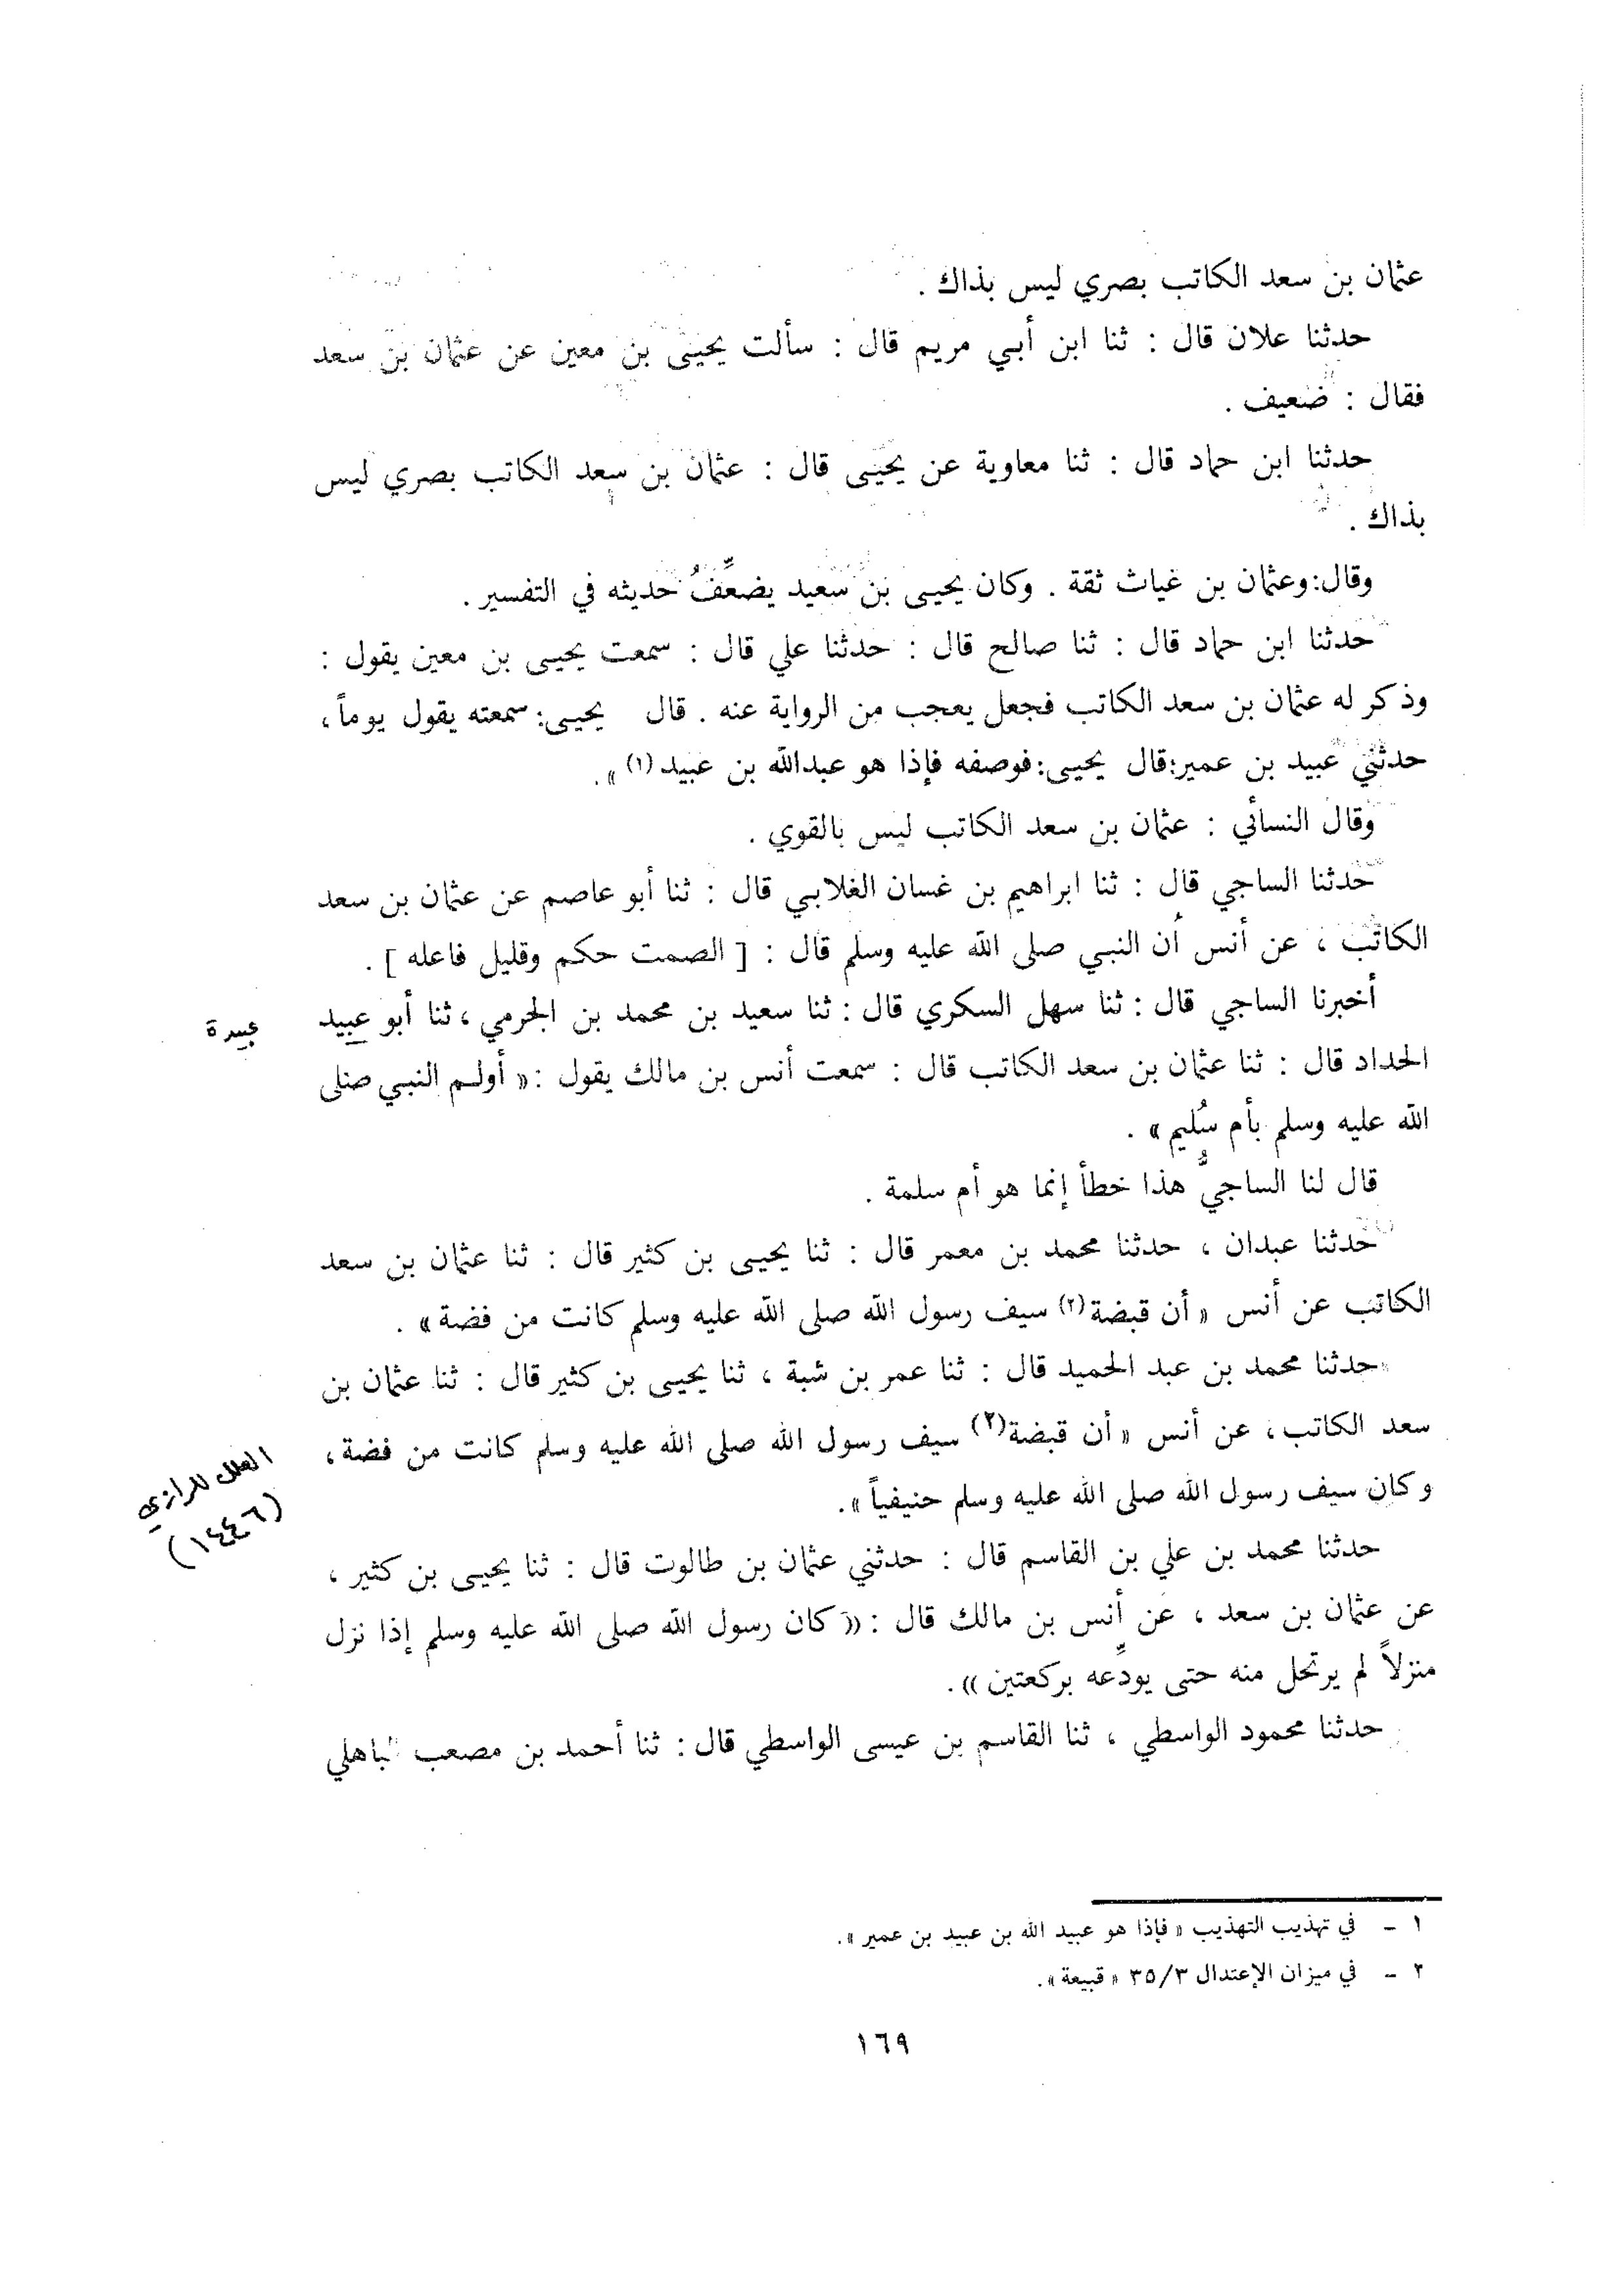 عثمان بن سعد الكاتب بصري ليس بذاك .
حدثنا علان قال : ثنا ابن أبي مريم قال : سألت يحيى بن معين عن عثمان بن سعد
فقال : ضعيف .
حدثنا ابن حماد قال : ثنا معاوية عن يحيى قال : عثمان بن سعد الكاتب بصري ليس
بذاك .
وقال:وعثمان بن غياث ثقة . وكان يحيى بن سعيد يضعِّفُ حديثه في التفسير .
حدثنا ابن حماد قال : ثنا صالح قال : حدثنا علي قال : سمعت يحيى بن معين يقول :
وذكر له عثمان بن سعد الكاتب فجعل يعجب من الرواية عنه . قال يحيى: سمعته يقول يوماً ،
حدثني عبيد بن عمير:قال يحيى:فوصفه فإذا هو عبدالله بن عبيد (١) » .
وقال النسائي : عثمان بن سعد الكاتب ليس بالقوي .
حدثنا الساجي قال : ثنا ابراهيم بن غسان الغلابي قال : ثنا أبو عاصم عن عثمان بن سعد
الكاتب ، عن أنس أن النبي صلى الله عليه وسلم قال : [ الصمت حكم وقليل فاعله ] .
أخبرنا الساجي قال : ثنا سهل السكري قال : ثنا سعيد بن محمد بن الجرمي ، ثنا أبو عبيد
عبيدة
الحداد قال : ثنا عثمان بن سعد الكاتب قال : سمعت أنس بن مالك يقول : « أولم النبي صلى
الله عليه وسلم بأم سُليم » .
قال لنا الساجيُّ هذا خطأ إنما هو أم سلمة .
حدثنا عبدان ، حدثنا محمد بن معمر قال : ثنا يحيى بن كثير قال : ثنا عثمان بن سعد
الكاتب عن أنس « أن قبضة(٢) سيف رسول الله صلى الله عليه وسلم كانت من فضة » .
حدثنا محمد بن عبد الحميد قال : ثنا عمر بن شبة ، ثنا يحيى بن كثير قال : ثنا عثمان بن
سعد الكاتب ، عن أنس « أن قبضة(٢) سيف رسول الله صلى الله عليه وسلم كانت من فضة ،
العلل للرازي
وكان سيف رسول الله صلى الله عليه وسلم حنيفياً » .
(١٤٤٦)
حدثنا محمد بن علي بن القاسم قال : حدثني عثمان بن طالوت قال : ثنا يحيى بن كثير ،
عن عثمان بن سعد ، عن أنس بن مالك قال : « كان رسول الله صلى الله عليه وسلم إذا نزل
منزلاً لم يرتحل منه حتى يودِّعه بركعتين » .
حدثنا محمود الواسطي ، ثنا القاسم بن عيسى الواسطي قال : ثنا أحمد بن مصعب الباهلي
١ - في تهذيب التهذيب « فإذا هو عبيد الله بن عبيد بن عمير » .
٢ - في ميزان الإعتدال ٣٥/٣ « قبيعة » .
١٦٩